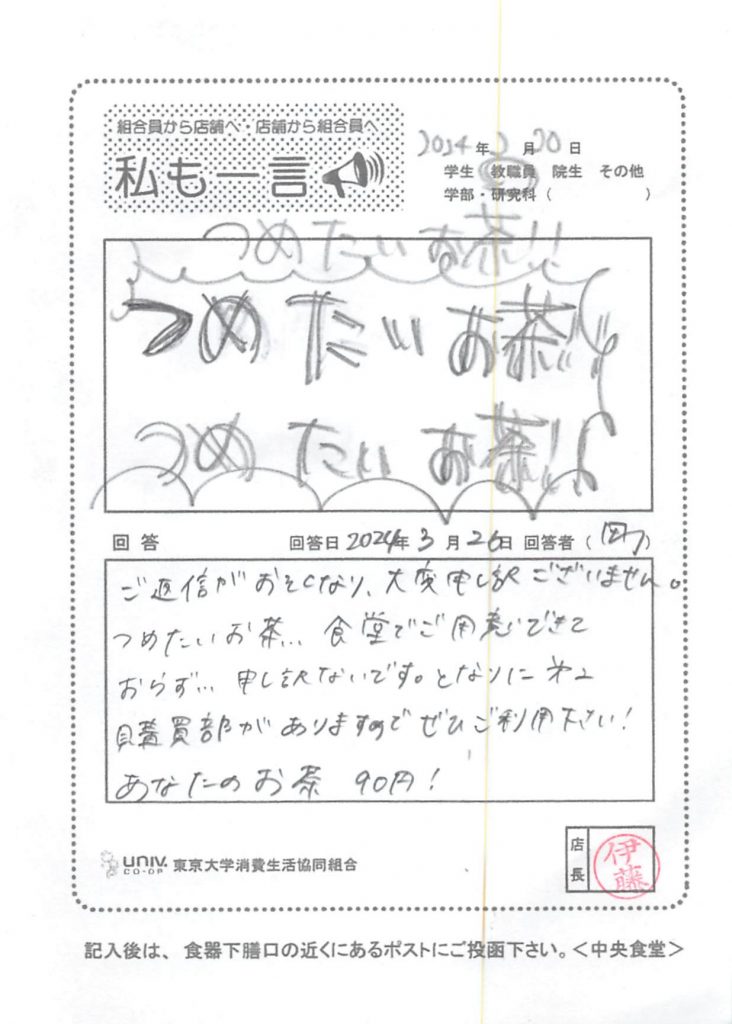 組合員から店舗へ・店舗から組合員へ
私も一言
2024年2月20日
学生 教職員 院生 その他
学部・研究科( )
つめたいお茶!!
つめたいお茶!!
つめたいお茶!!
回答 回答日 2024年3月26日 回答者( )
ご返信がおそくなり、大変申し訳ございません。
つめたいお茶... 食堂でご用意できて
おらず... 申し訳ないです。となりに第2
購買部がありますのでぜひご利用下さい!
あなたのお茶 90円!
UNIV. CO-OP 東京大学消費生活協同組合
店長 伊藤
記入後は、食器下膳口の近くにあるポストにご投函下さい。<中央食堂>